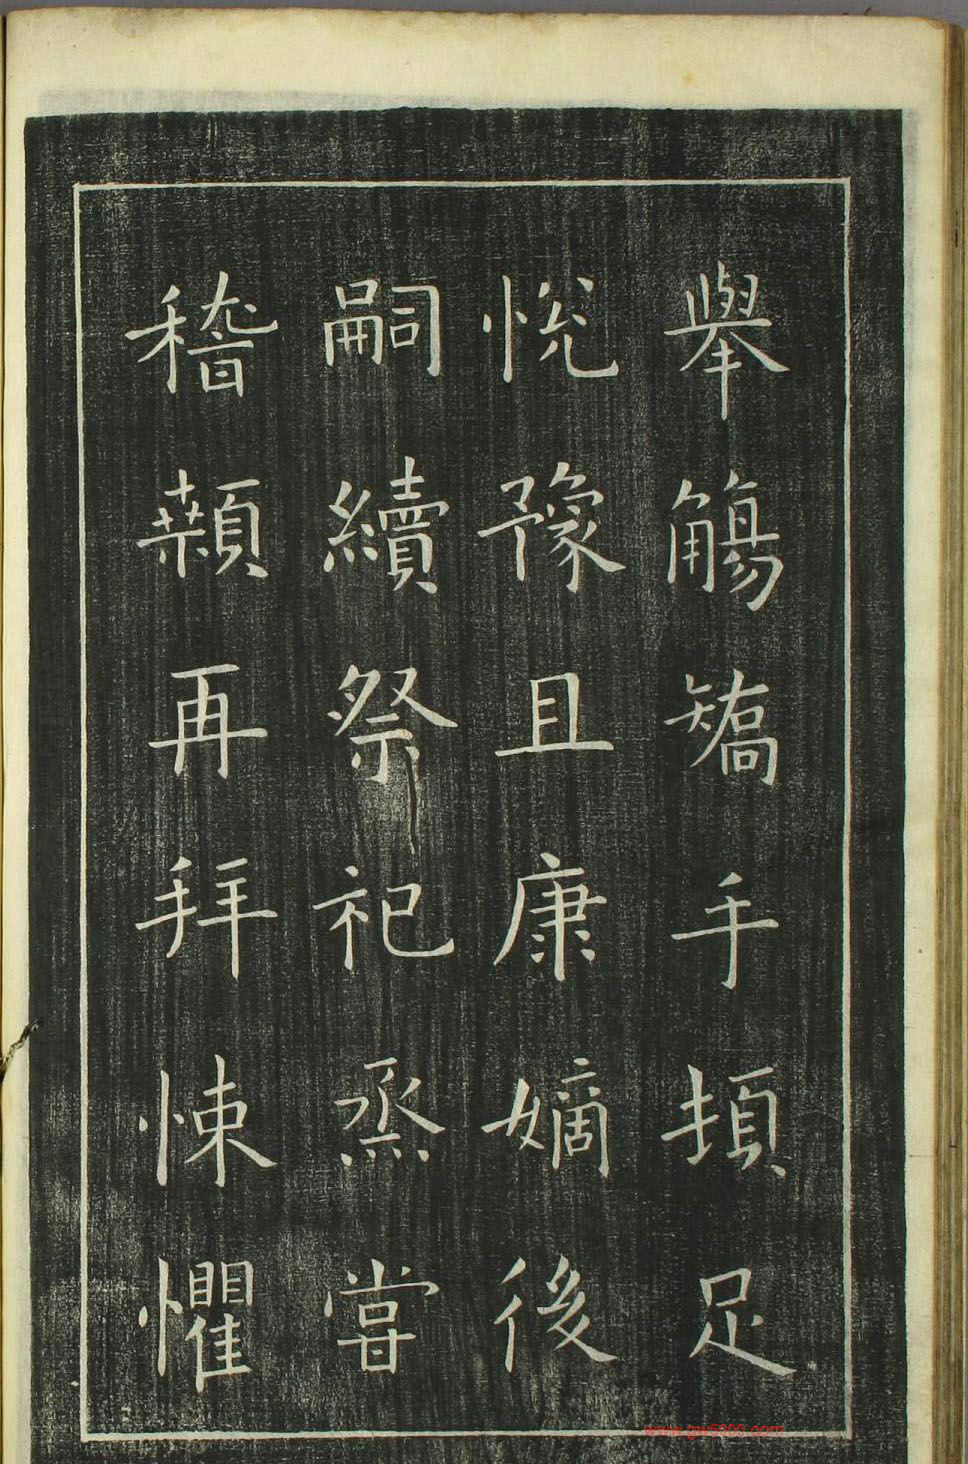 舉觴矯手頓足
悅豫且康嫡後
嗣續祭祀烝嘗
稽顙再拜悚懼
www.gw5000.com